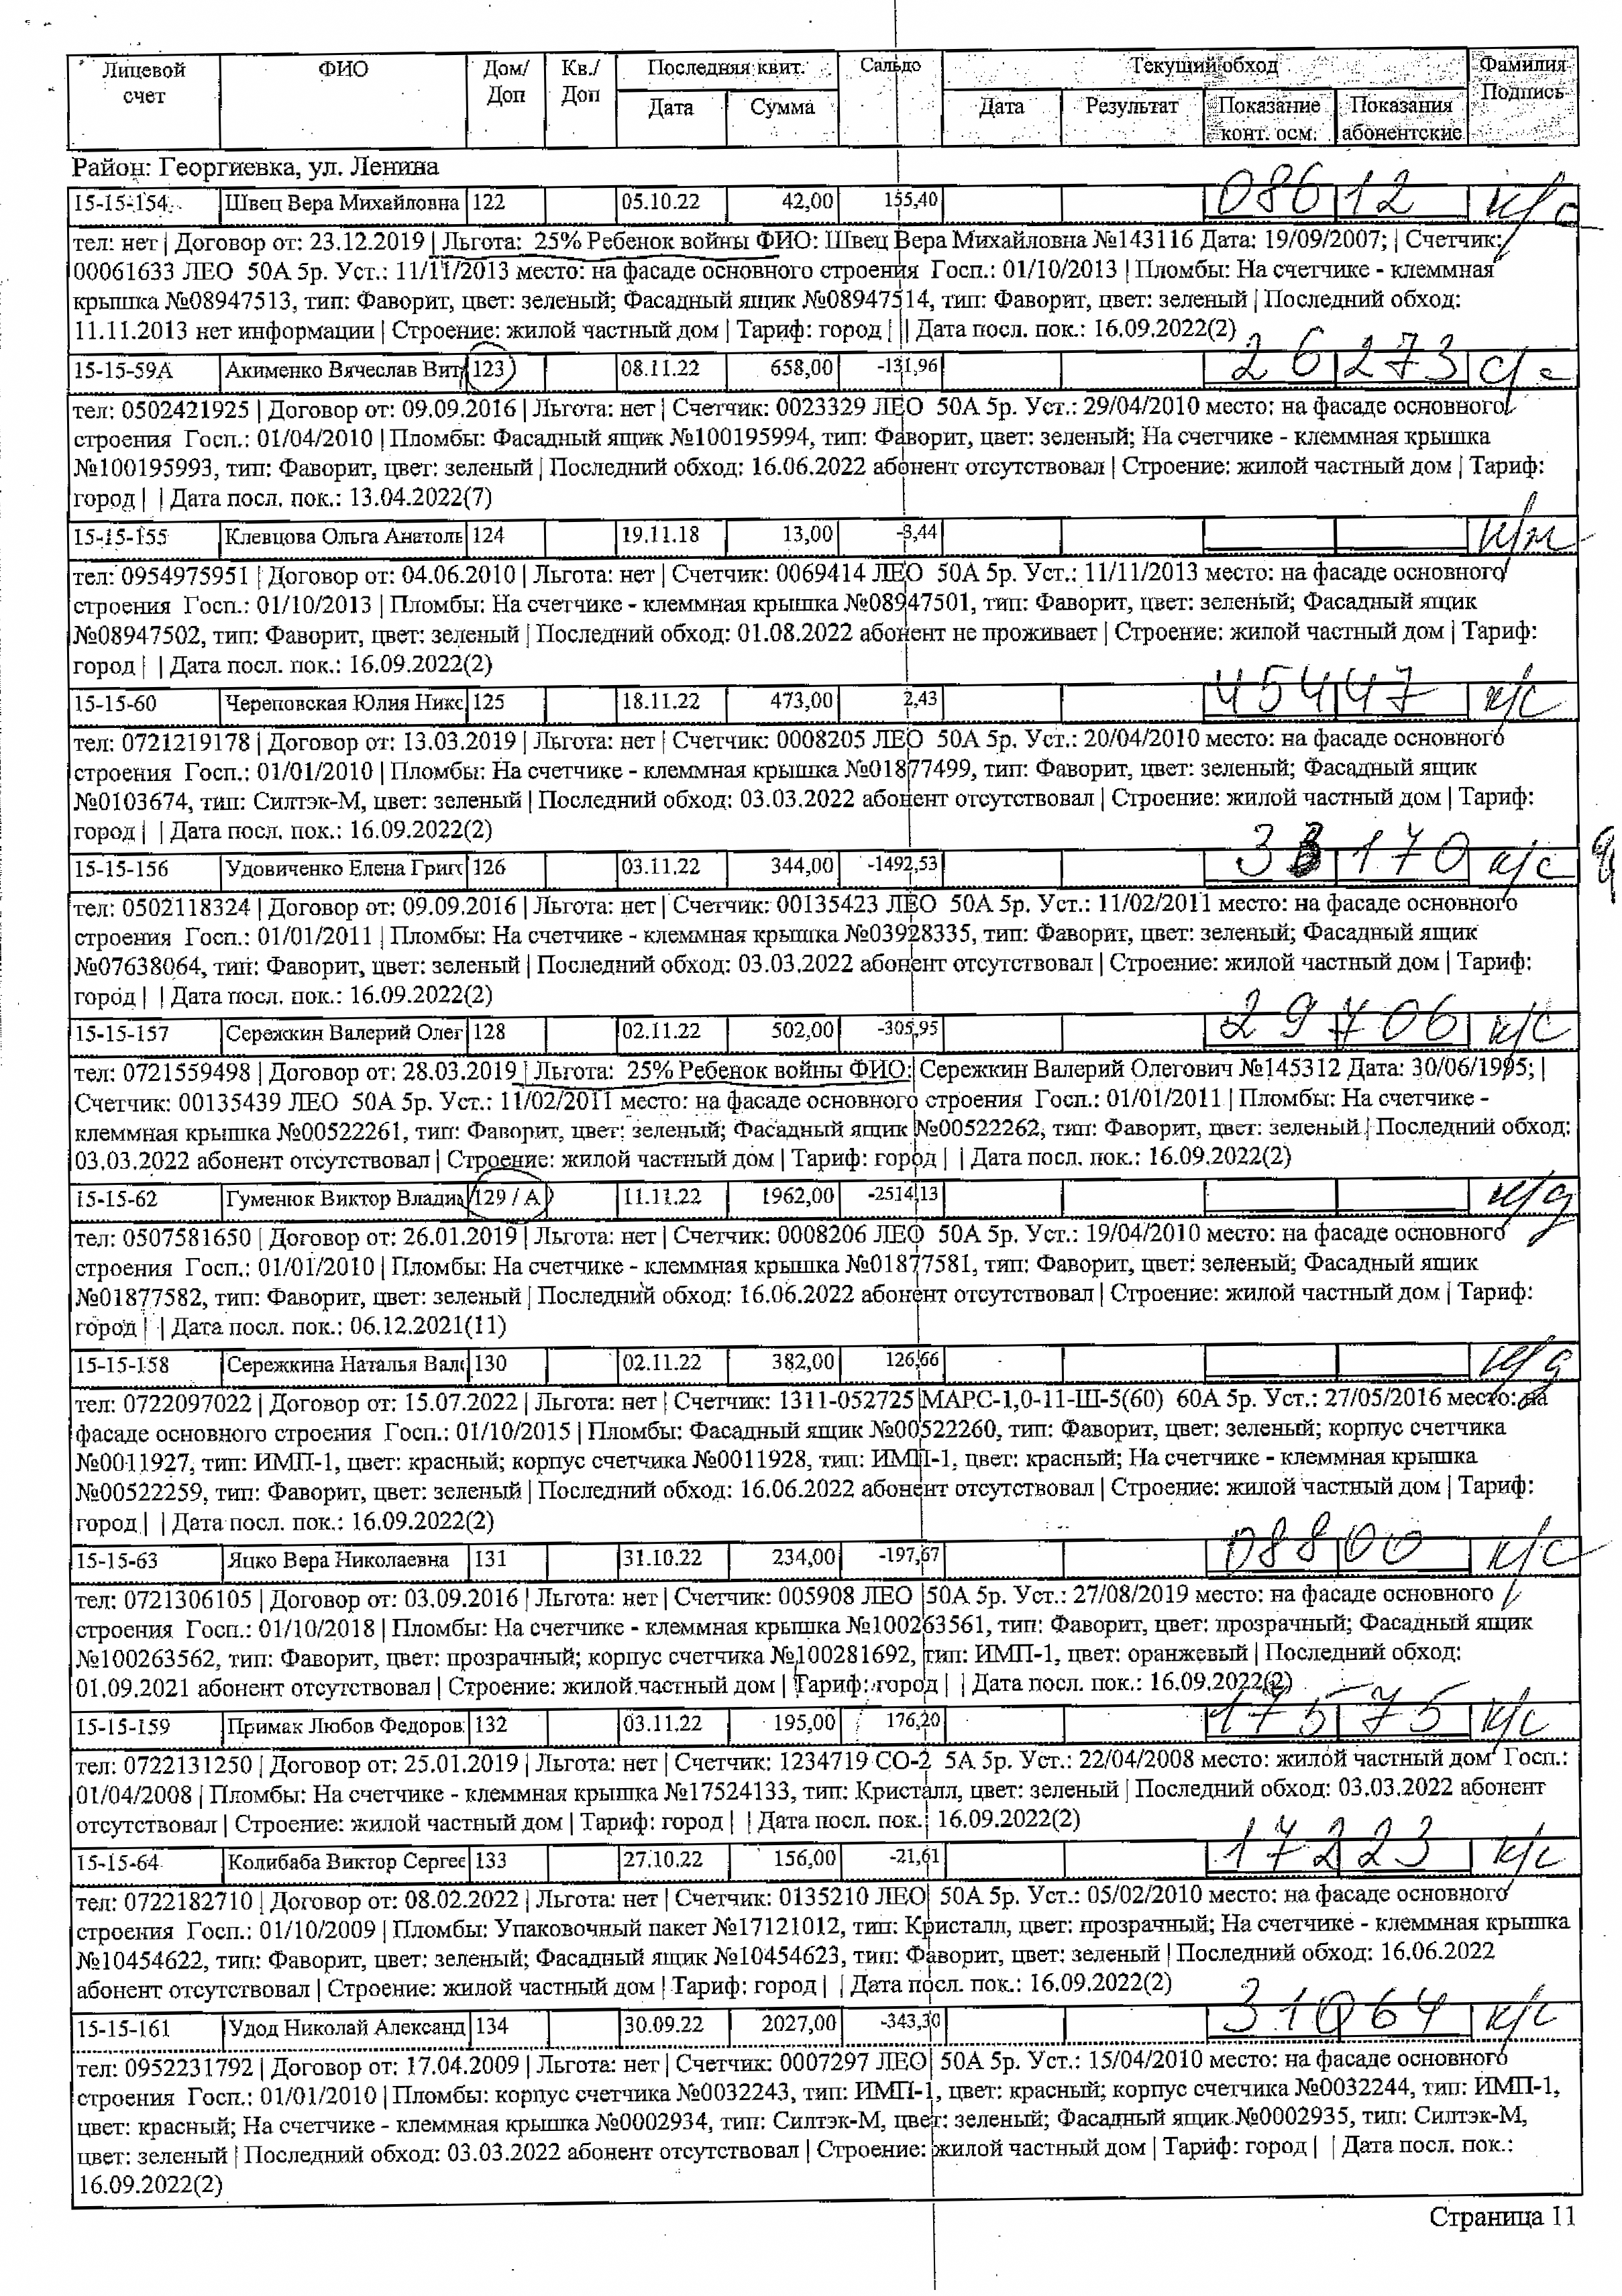 Лицевой счет ФИО Дом/ Доп Кв./ Доп Последняя квит. Дата Сумма Сальдо Текущий обход Дата Результат Показание конт. осм. Показания абонентские Фамилия Подпись
Район: Георгиевка, ул. Ленина
15-15-154 Швец Вера Михайловна 122 05.10.22 42,00 155,40 08612 к/с
тел: нет | Договор от: 23.12.2019 | Льгота: 25% Ребенок войны ФИО: Швец Вера Михайловна №143116 Дата: 19/09/2007; | Счетчик:
00061633 ЛЕО 50А 5р. Уст.: 11/11/2013 место: на фасаде основного строения Госп.: 01/10/2013 | Пломбы: На счетчике - клеммная
крышка №08947513, тип: Фаворит, цвет: зеленый; Фасадный ящик №08947514, тип: Фаворит, цвет: зеленый | Последний обход:
11.11.2013 нет информации | Строение: жилой частный дом | Тариф: город | || Дата посл. пок.: 16.09.2022(2)
15-15-59А Акименко Вячеслав Вит 123 08.11.22 658,00 -131,96 26273 с/с
тел: 0502421925 | Договор от: 09.09.2016 | Льгота: нет | Счетчик: 0023329 ЛЕО 50А 5р. Уст.: 29/04/2010 место: на фасаде основного
строения Госп.: 01/04/2010 | Пломбы: Фасадный ящик №100195994, тип: Фаворит, цвет: зеленый; На счетчике - клеммная крышка
№100195993, тип: Фаворит, цвет: зеленый | Последний обход: 16.06.2022 абонент отсутствовал | Строение: жилой частный дом | Тариф:
город | | Дата посл. пок.: 13.04.2022(7)
15-15-155 Клевцова Ольга Анатоль 124 19.11.18 13,00 -3,44 н/ж
тел: 0954975951 | Договор от: 04.06.2010 | Льгота: нет | Счетчик: 0069414 ЛЕО 50А 5р. Уст.: 11/11/2013 место: на фасаде основного
строения Госп.: 01/10/2013 | Пломбы: На счетчике - клеммная крышка №08947501, тип: Фаворит, цвет: зеленый; Фасадный ящик
№08947502, тип: Фаворит, цвет: зеленый | Последний обход: 01.08.2022 абонент не проживает | Строение: жилой частный дом | Тариф:
город | | Дата посл. пок.: 16.09.2022(2)
15-15-60 Череповская Юлия Никс 125 18.11.22 473,00 2,43 45447 к/с
тел: 0721219178 | Договор от: 13.03.2019 | Льгота: нет | Счетчик: 0008205 ЛЕО 50А 5р. Уст.: 20/04/2010 место: на фасаде основного
строения Госп.: 01/01/2010 | Пломбы: На счетчике - клеммная крышка №01877499, тип: Фаворит, цвет: зеленый; Фасадный ящик
№0103674, тип: Силтэк-М, цвет: зеленый | Последний обход: 03.03.2022 абонент отсутствовал | Строение: жилой частный дом | Тариф:
город | | Дата посл. пок.: 16.09.2022(2)
15-15-156 Удовиченко Елена Григо 126 03.11.22 344,00 -1492,53 33170 к/с
тел: 0502118324 | Договор от: 09.09.2016 | Льгота: нет | Счетчик: 00135423 ЛЕО 50А 5р. Уст.: 11/02/2011 место: на фасаде основного
строения Госп.: 01/01/2011 | Пломбы: На счетчике - клеммная крышка №03928335, тип: Фаворит, цвет: зеленый; Фасадный ящик
№07638064, тип: Фаворит, цвет: зеленый | Последний обход: 03.03.2022 абонент отсутствовал | Строение: жилой частный дом | Тариф:
город | | Дата посл. пок.: 16.09.2022(2)
15-15-157 Сережкин Валерий Олег 128 02.11.22 502,00 -305,95 29706 к/с
тел: 0721559498 | Договор от: 28.03.2019 | Льгота: 25% Ребенок войны ФИО: Сережкин Валерий Олегович №145312 Дата: 30/06/1995; |
Счетчик: 00135439 ЛЕО 50А 5р. Уст.: 11/02/2011 место: на фасаде основного строения Госп.: 01/01/2011 | Пломбы: На счетчике -
клеммная крышка №00522261, тип: Фаворит, цвет: зеленый; Фасадный ящик №00522262, тип: Фаворит, цвет: зеленый | Последний обход:
03.03.2022 абонент отсутствовал | Строение: жилой частный дом | Тариф: город | | Дата посл. пок.: 16.09.2022(2)
15-15-62 Гуменюк Виктор Влади 129 / А 11.11.22 1962,00 -2514,13 н/д
тел: 0507581650 | Договор от: 26.01.2019 | Льгота: нет | Счетчик: 0008206 ЛЕО 50А 5р. Уст.: 19/04/2010 место: на фасаде основного
строения Госп.: 01/01/2010 | Пломбы: На счетчике - клеммная крышка №01877581, тип: Фаворит, цвет: зеленый; Фасадный ящик
№01877582, тип: Фаворит, цвет: зеленый | Последний обход: 16.06.2022 абонент отсутствовал | Строение: жилой частный дом | Тариф:
город | | Дата посл. пок.: 06.12.2021(11)
15-15-158 Сережкина Наталья Вале 130 02.11.22 382,00 126,66 н/д
тел: 0722097022 | Договор от: 15.07.2022 | Льгота: нет | Счетчик: 1311-052725 МАРС-1,0-11-Ш-5(60) 60А 5р. Уст.: 27/05/2016 место: на
фасаде основного строения Госп.: 01/10/2015 | Пломбы: Фасадный ящик №00522260, тип: Фаворит, цвет: зеленый; корпус счетчика
№0011927, тип: ИМП-1, цвет: красный; корпус счетчика №0011928, тип: ИМП-1, цвет: красный; На счетчике - клеммная крышка
№00522259, тип: Фаворит, цвет: зеленый | Последний обход: 16.06.2022 абонент отсутствовал | Строение: жилой частный дом | Тариф:
город | | Дата посл. пок.: 16.09.2022(2)
15-15-63 Яцко Вера Николаевна 131 31.10.22 234,00 -197,67 08800 к/с
тел: 0721306105 | Договор от: 03.09.2016 | Льгота: нет | Счетчик: 005908 ЛЕО 50А 5р. Уст.: 27/08/2019 место: на фасаде основного
строения Госп.: 01/10/2018 | Пломбы: На счетчике - клеммная крышка №100263561, тип: Фаворит, цвет: прозрачный; Фасадный ящик
№100263562, тип: Фаворит, цвет: прозрачный; корпус счетчика №100281692, тип: ИМП-1, цвет: оранжевый | Последний обход:
01.09.2021 абонент отсутствовал | Строение: жилой частный дом | Тариф: город | | Дата посл. пок.: 16.09.2022(2)
15-15-159 Примак Любов Федоров 132 03.11.22 195,00 176,20 17575 к/с
тел: 0722131250 | Договор от: 25.01.2019 | Льгота: нет | Счетчик: 1234719 СО-2 5А 5р. Уст.: 22/04/2008 место: жилой частный дом Госп.:
01/04/2008 | Пломбы: На счетчике - клеммная крышка №17524133, тип: Кристалл, цвет: зеленый | Последний обход: 03.03.2022 абонент
отсутствовал | Строение: жилой частный дом | Тариф: город | | Дата посл. пок.: 16.09.2022(2)
15-15-64 Колибаба Виктор Сергее 133 27.10.22 156,00 -21,61 17223 к/с
тел: 0722182710 | Договор от: 08.02.2022 | Льгота: нет | Счетчик: 0135210 ЛЕО 50А 5р. Уст.: 05/02/2010 место: на фасаде основного
строения Госп.: 01/10/2009 | Пломбы: Упаковочный пакет №17121012, тип: Кристалл, цвет: прозрачный; На счетчике - клеммная крышка
№10454622, тип: Фаворит, цвет: зеленый; Фасадный ящик №10454623, тип: Фаворит, цвет: зеленый | Последний обход: 16.06.2022
абонент отсутствовал | Строение: жилой частный дом | Тариф: город | | Дата посл. пок.: 16.09.2022(2)
15-15-161 Удод Николай Александ 134 30.09.22 2027,00 -343,30 31064 к/с
тел: 0952231792 | Договор от: 17.04.2009 | Льгота: нет | Счетчик: 0007297 ЛЕО 50А 5р. Уст.: 15/04/2010 место: на фасаде основного
строения Госп.: 01/01/2010 | Пломбы: корпус счетчика №0032243, тип: ИМП-1, цвет: красный; корпус счетчика №0032244, тип: ИМП-1,
цвет: красный; На счетчике - клеммная крышка №0002934, тип: Силтэк-М, цвет: зеленый; Фасадный ящик №0002935, тип: Силтэк-М,
цвет: зеленый | Последний обход: 03.03.2022 абонент отсутствовал | Строение: жилой частный дом | Тариф: город | | Дата посл. пок.:
16.09.2022(2)
Страница 11